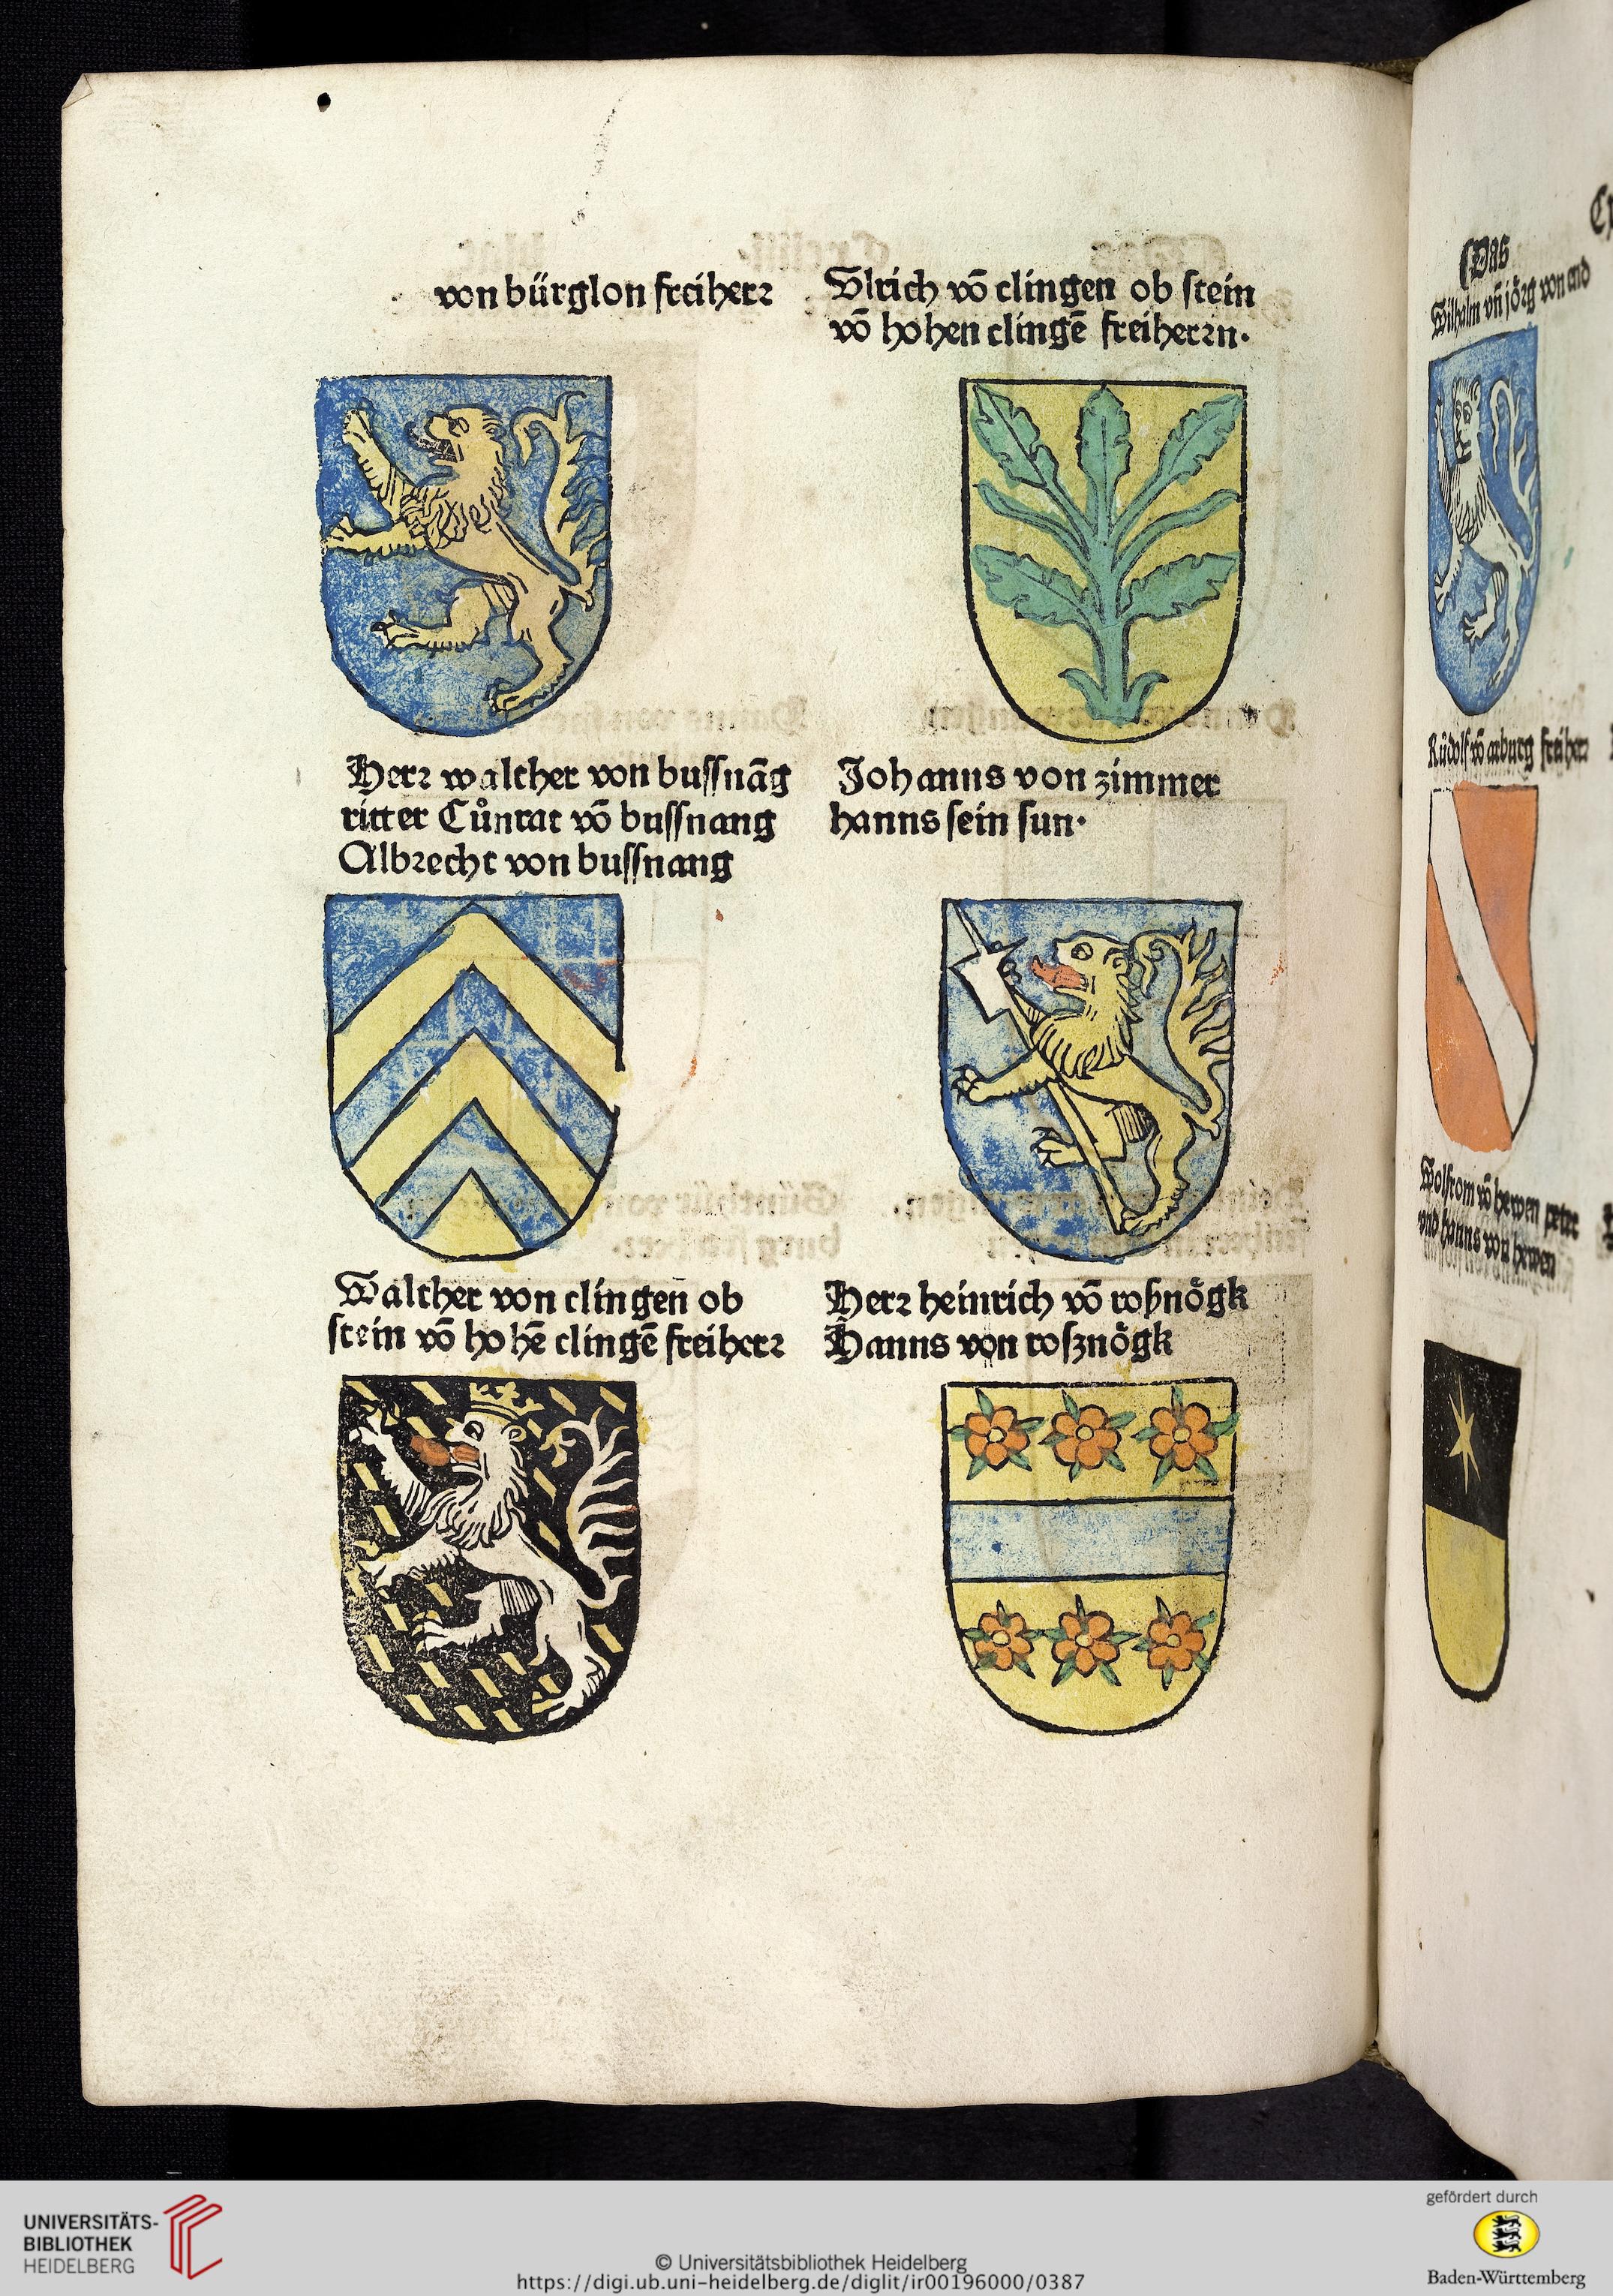 von bürglon freiherr
Ulrich vō clingen ob stein
vō hohen clingē freiherrn.
Herr walther von bussnāg
ritter Cůnrat vō bussnang
Albrecht von bussnang
Johanns von zimmer
hanns sein sun.
Walther von clingen ob
stein vō hohē clingē freiherr
Herr heinrich vō roßnögk
Hanns von rosznögk
Das
Wilhalm vn̄ jörg von end
Růdolf vō arburg freiherr
Wolfrom vō hewen peter
vnd hanns von hewen
UNIVERSITÄTS-
BIBLIOTHEK
HEIDELBERG
© Universitätsbibliothek Heidelberg
https://digi.ub.uni-heidelberg.de/diglit/ir00196000/0387
gefördert durch
Baden-Württemberg